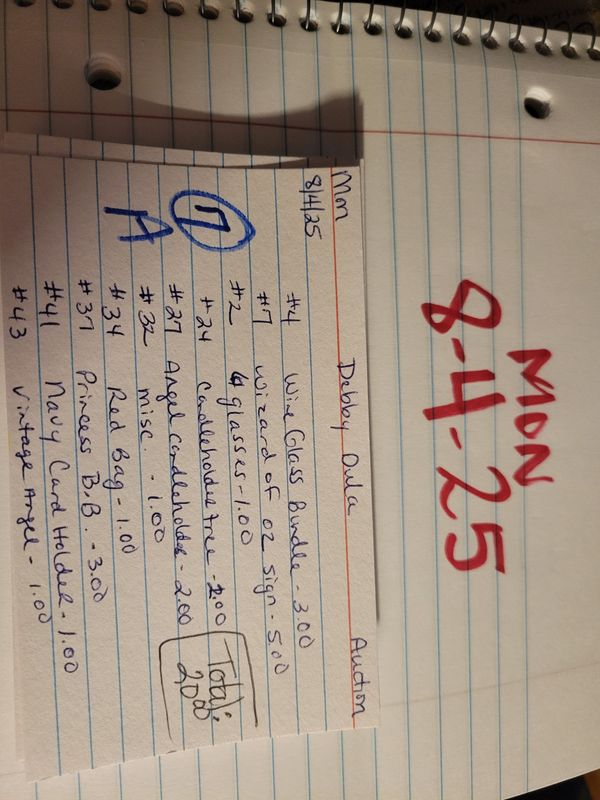 MON
8-4-25
Mon Debby Dula Auction
8/4/25
#4 Wine Glass Bundle - 3.00
#7 Wizard of OZ sign - 5.00
#2 4 glasses - 1.00
#24 Candleholder tree - 2.00
#27 Angel candleholder - 2.00
#32 misc. - 1.00
#34 Red Bag - 1.00
#37 Princess B.B. - 3.00
#41 Navy Card Holder - 1.00
#43 Vintage Angel - 1.00
7
A
Total:
20.00